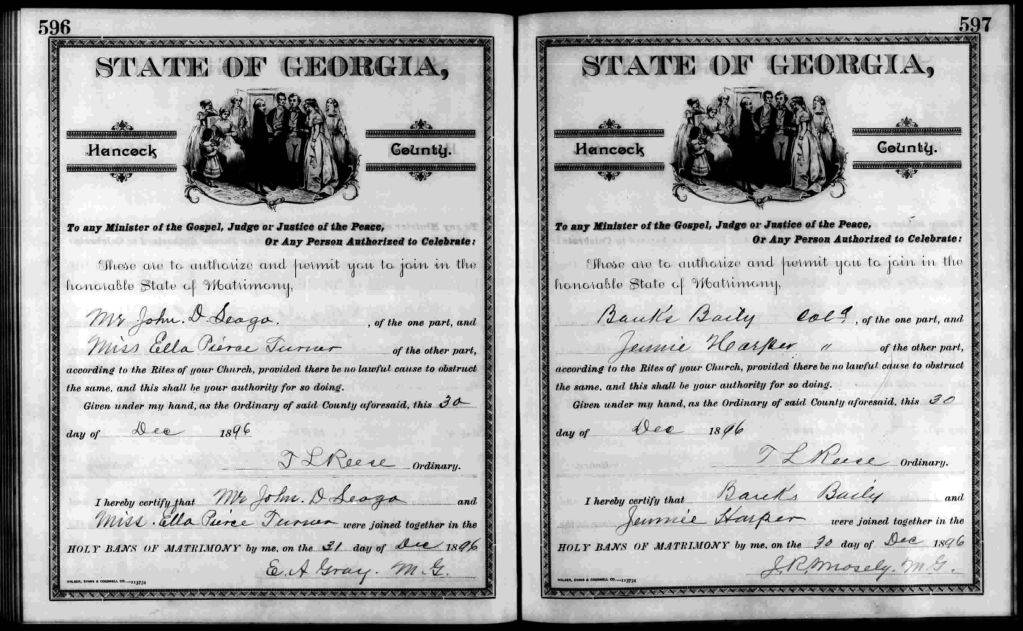 596
STATE OF GEORGIA,
Hancock County.
To any Minister of the Gospel, Judge or Justice of the Peace,
Or Any Person Authorized to Celebrate:
These are to authorize and permit you to join in the
honorable State of Matrimony,
Mr John. D. Seago. , of the one part, and
Miss Ella Pierce Turner of the other part,
according to the Rites of your Church, provided there be no lawful cause to obstruct
the same, and this shall be your authority for so doing.
Given under my hand, as the Ordinary of said County aforesaid, this 30
day of Dec 1896
T L Reese Ordinary.
I hereby certify that Mr John. D Seago and
Miss. Ella Pierce Turner were joined together in the
HOLY BANS OF MATRIMONY by me, on the 31 day of Dec 1896
E. A Gray. M.G.
WALKER, EVANS & COGSWELL CO.
597
STATE OF GEORGIA,
Hancock County.
To any Minister of the Gospel, Judge or Justice of the Peace,
Or Any Person Authorized to Celebrate:
These are to authorize and permit you to join in the
honorable State of Matrimony,
Banks Baily Cold , of the one part, and
Jennie Harper " of the other part,
according to the Rites of your Church, provided there be no lawful cause to obstruct
the same, and this shall be your authority for so doing.
Given under my hand, as the Ordinary of said County aforesaid, this 30
day of Dec 1896
T L Reese Ordinary.
I hereby certify that Banks Baily and
Jennie Harper were joined together in the
HOLY BANS OF MATRIMONY by me, on the 30 day of Dec 1896
J. R. Mosely. M.G.
WALKER, EVANS & COGSWELL CO.